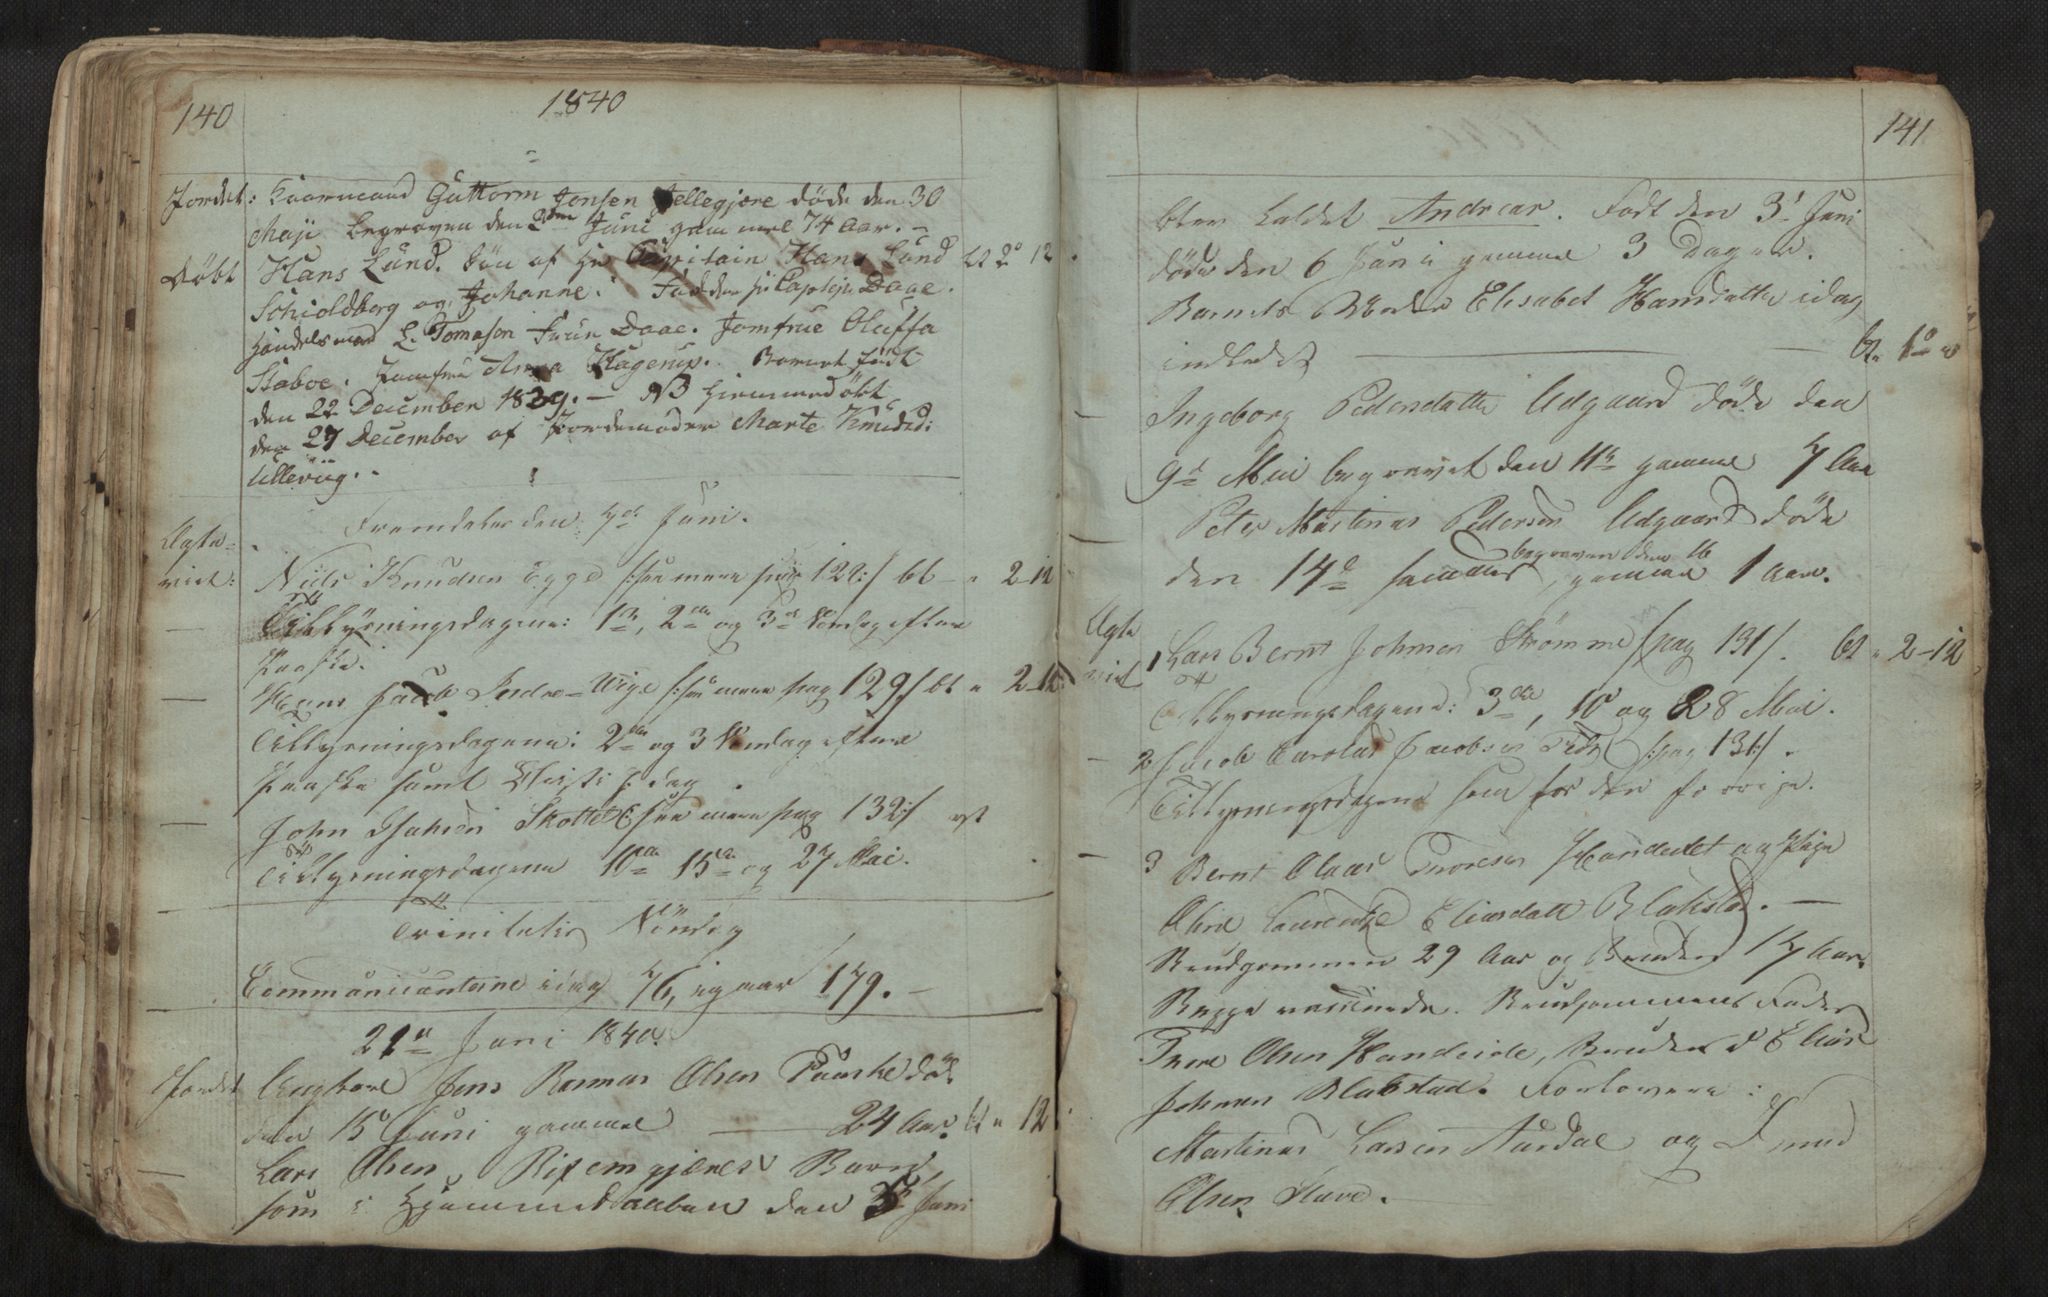 140
1840
Jordet: Kaarmand Guttorm Jonsen Jellegjære døde den 30
Maji begraven den 2den Juni gammel 74 Aar. –
Døbt Hans Lund. Søn af Hr Capitain Hans Lund bt 2° 12.
Schioldberg og Johanne. Fadder Daae.
Handelsmand L. Tomeson Frue Daae. Jomfrue Oluffa
Staboe. Jomfrue Anna Hagerup. Barnet født
den 22 December 1839. – NB Hjemmedøbt
den 27 December af Jordemoder Marte Knudsd:
Ullerüg.
Fremdeles den 7de Juni.
Ægte-
viet: Niels Knudsen Egge /:see mere pag 122:/ bt – " 2-12
Tillysningsdagene: 1ste, 2den og 3die Søndag efter
Paaske.
Hans Jacob Wige /:see mere pag 129:/ bt " 2-12
Tillysningsdagene: 2den og 3 Søndag efter
Paaske samt Christi dag
John Johnsen see mere pag 132:/
Tillysningsdagene 10de 15de og 27 Mai.
Trinitatis Søndag
Communicanterne idag 76, igaar 179. –
21de Juni 1840.
Jordet Ungkarl Jens Rasmus Olsen døde
den 15de Juni gammel — 24 Aar. bt " 12
Lars Olsen Barn,
som i Hjemmedaaben den 3de Juni
141
blev kaldet Andreas. Født den 3die Juni
døde den 6 Juni gammel 3 Dage.
Barnets Moder Elisabet Hansdatter idag
indledet — bt. 1° "
Ingeborg Pedersdatter Udgaard døde den
9de Mai begravet den 11te gammel 7 Aar
Peter Martinus Pedersen Udgaard døde
den 14de samme, begraven den 16 gammel 1 Aar.
Ægte
viet 1 Lars Bernt Johnsen Strømme /pag 131/. bt " 2-12
Tillysningsdagene: 3die, 10de og 28 Mai.
2 Jacob Carolus Jacobsen /:pag 131:/.
Tillysningsdagene som for den forrige.
3 Bernt Olaus Toresen og Pige
Oline Laurentze Eliasdatt Blakstad. —
Brudgommen 29 Aar og Bruden 17 Aar.
Begge vaccinerede. Brudgommens Fader
Tore Olsen Handeide, Brudens d° Elias
Johnsen Blakstad. Forlovere:
Martinus Larsen Aardal og Knud
Olsen Have.